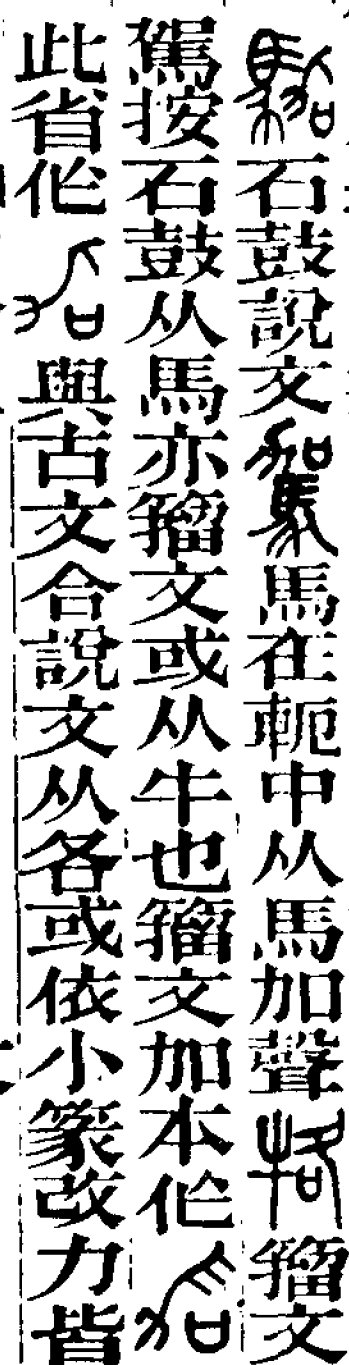 石鼓說文馬在軛中从馬加聲籀文
駕按石鼓从馬亦籀文或从牛也籀文加本作
此省作與古文合說文从各或依小篆改力皆